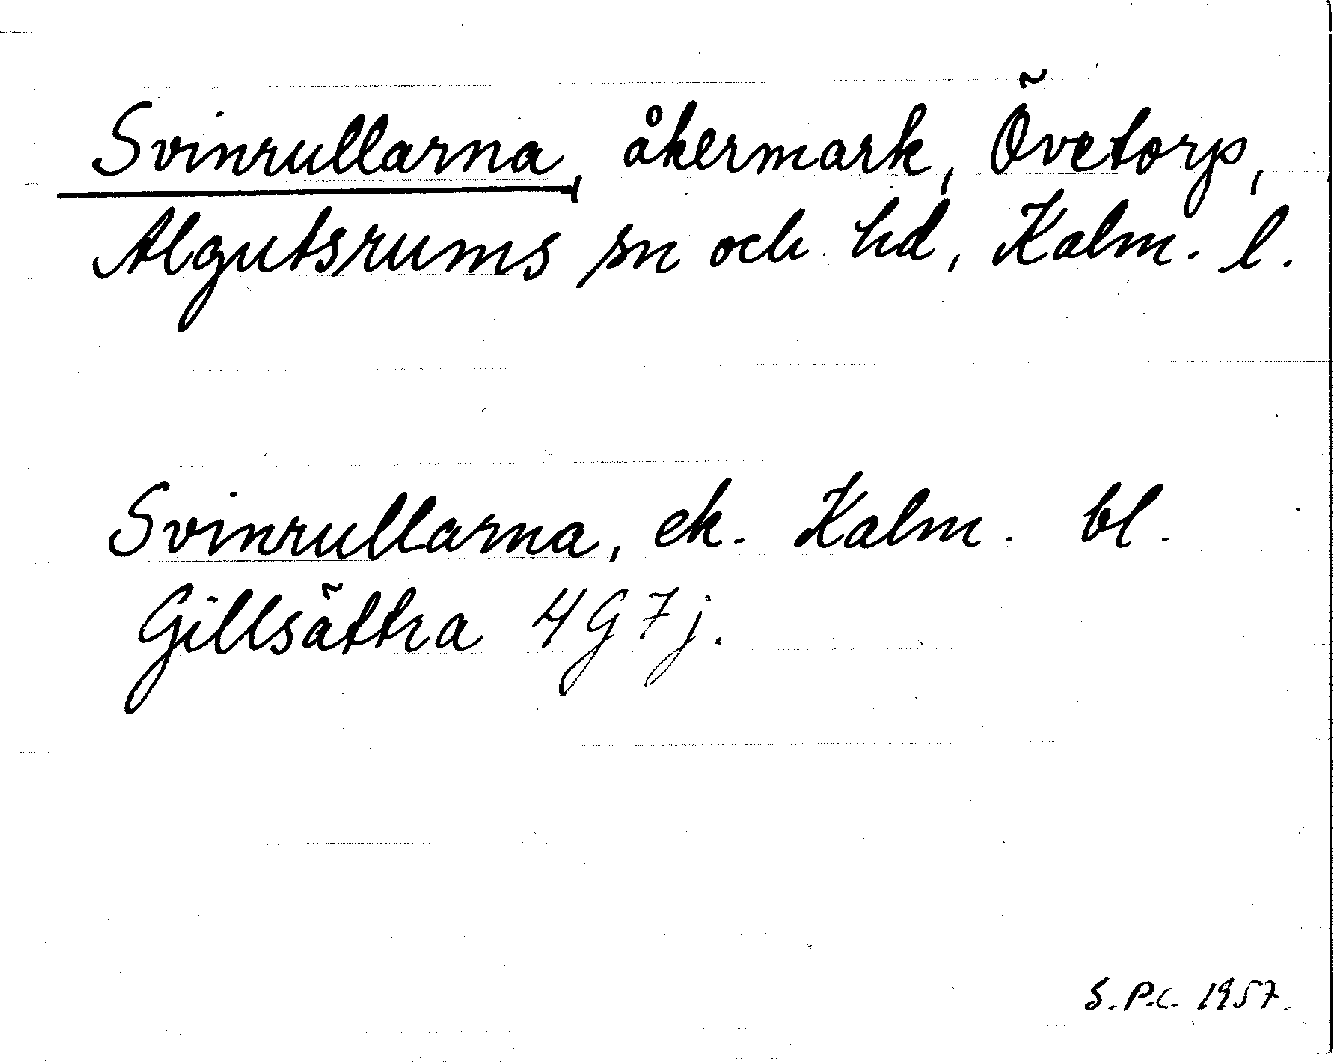 Svinrullarna, åkermark, Övetorp,
Algutsrums sn och hd, Kalm. l.
Svinrullarna, ek. Kalm. bl.
Gillsättra 4G7j.
S.P.C. 1957.